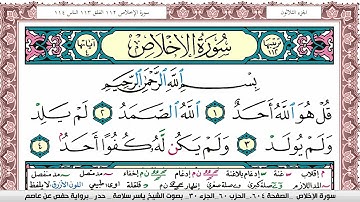 الجزء الثلاثون
سورة الإخلاص ١١٢ الفلق ١١٣ الناس ١١٤
سُورَةُ الْإِخْلَاصِ
آياتها ٤
بِسْمِ اللَّهِ الرَّحْمَٰنِ الرَّحِيمِ
قُلْ هُوَ اللَّهُ أَحَدٌ ١ اللَّهُ الصَّمَدُ ٢ لَمْ يَلِدْ
وَلَمْ يُولَدْ ٣ وَلَمْ يَكُن لَّهُ كُفُوًا أَحَدٌ ٤
سورة الإخلاص . الصفحة ٦٠٤ . الحزب ٦٠ . الجزء ٣٠ . بصوت الشيخ ياسر سلامة . حدر . برواية حفص عن عاصم